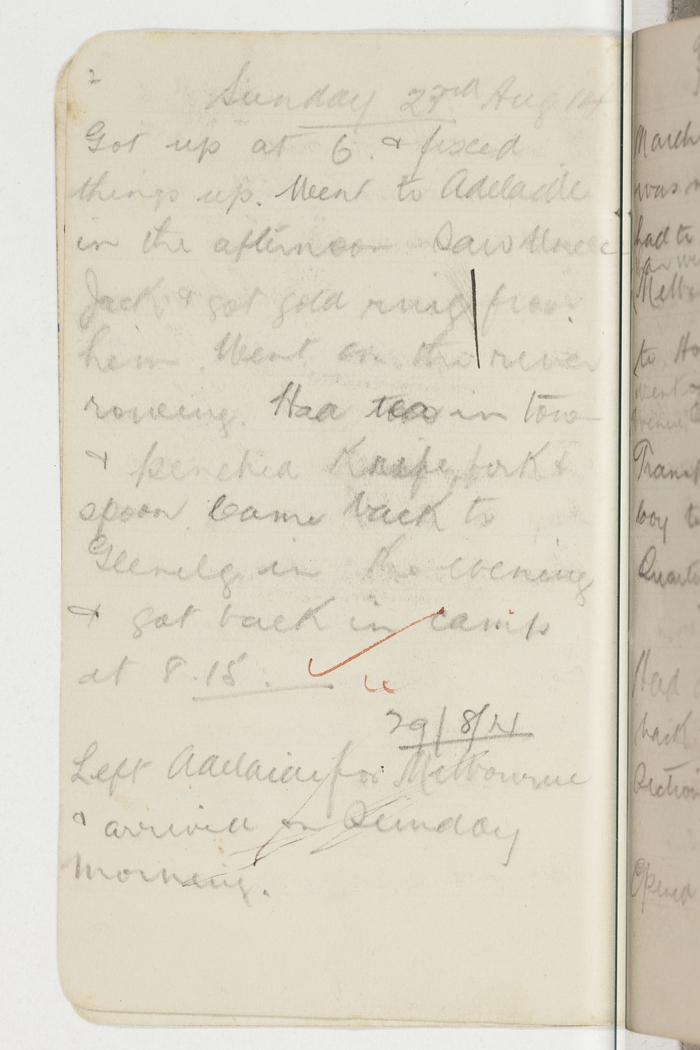 2
Sunday 23rd Aug 14
Got up at 6. & fixed
things up. Went to Adelaide
in the afternoon Saw Uncle
Jack & got gold ring from
him. Went on the river
rowing. Had tea in town
& penched Knife, fork &
spoon Came back to
Glenelg in the evening
& got back in camp
at 8.15.
29/8/14
Left Adelaide for Melbourne
& arrived on Sunday
Morning.
March
was
had to
to
Transp
Quarte
Had
back
Section
Opened